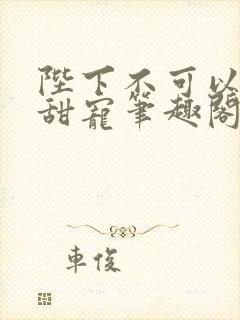 陛下不可以
甜寵筆趣閣
車俊